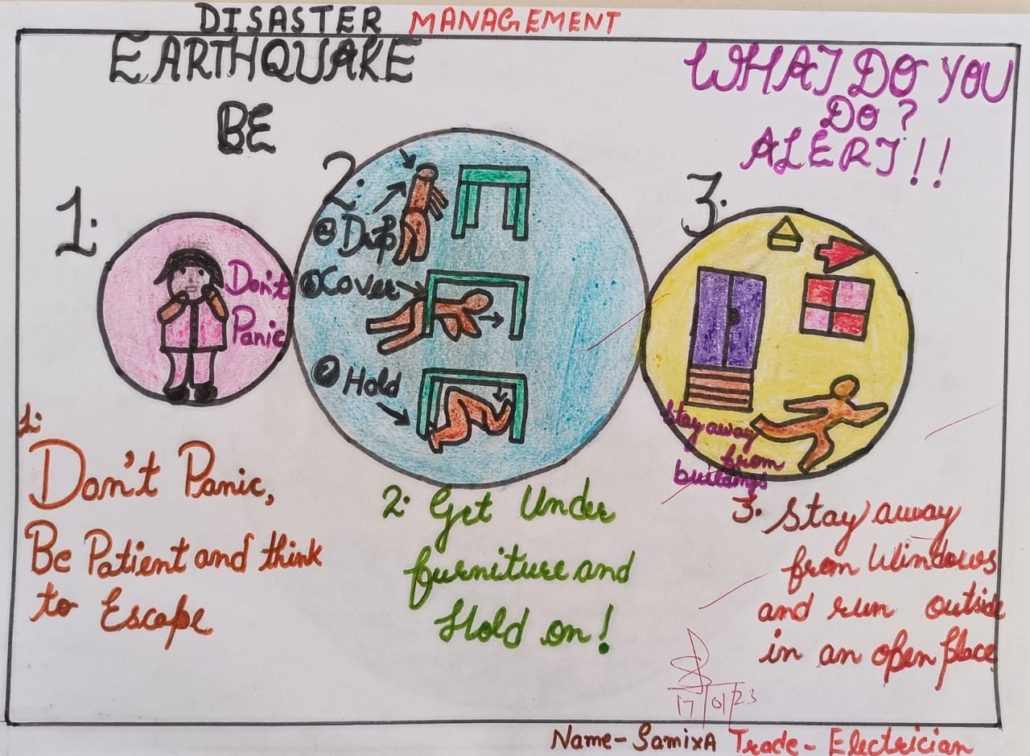 DISASTER MANAGEMENT
EARTHQUAKE
BE
WHAT DO YOU
DO?
ALERT!!
1:
Don't
Panic
2:
Drop
Cover
Hold
3:
Stay away
from
buildings
1:
Don't Panic,
Be Patient and think
to Escape
2: Get Under
furniture and
Hold on!
3. Stay away
from Windows
and run outside
in an open place
17/01/23
Name-SamixA Trade-Electrician